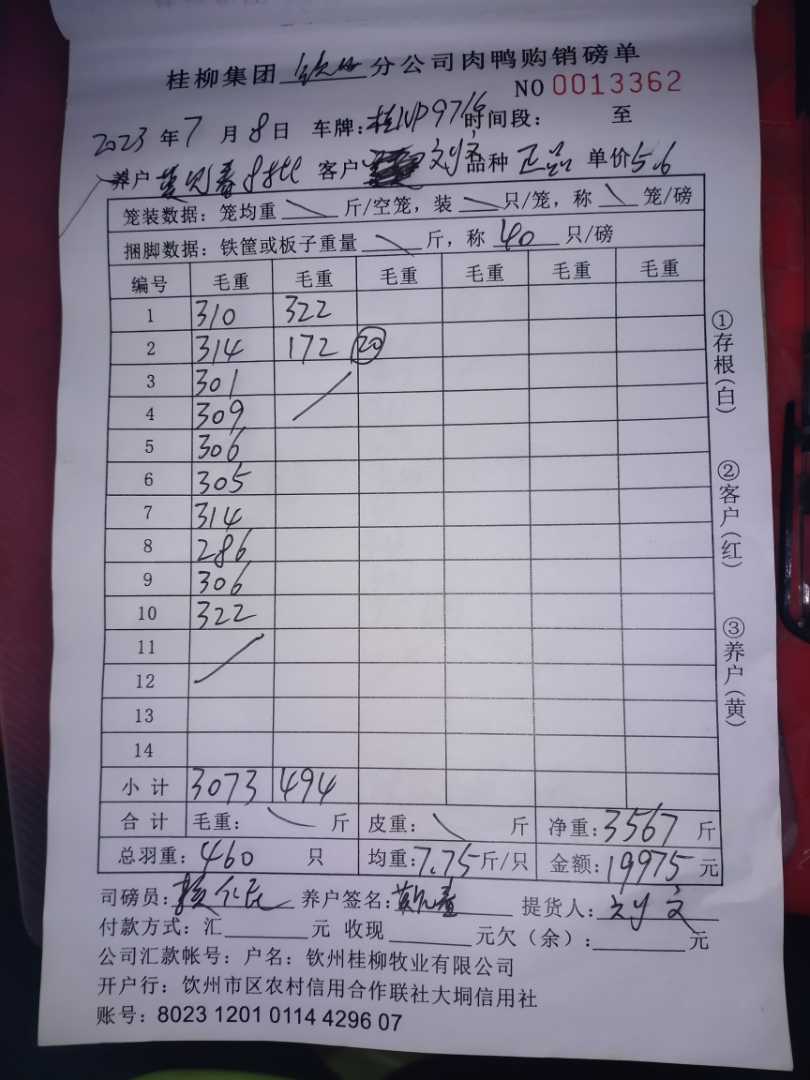 桂柳集团 钦州 分公司肉鸭购销磅单
NO 0013362
2023 年 7 月 8 日 车牌: 时间段: 至
养户 8批 客户 刘文 品种 正品 单价 5.6
笼装数据: 笼均重 斤/空笼, 装 只/笼, 称 笼/磅
捆脚数据: 铁筐或板子重量 斤, 称 40 只/磅
编号 毛重 毛重 毛重 毛重 毛重 毛重
1 310 322
2 314 172 20
3 301
4 309
5 306
6 305
7 314
8 286
9 306
10 322
11
12
13
14
小计 3073 494
合计 毛重: 斤 皮重: 斤 净重: 3567 斤
总羽重: 460 只 均重: 7.75 斤/只 金额: 19975 元
司磅员: 养户签名: 提货人: 刘文
付款方式: 汇 元 收现 元欠(余): 元
公司汇款帐号: 户名: 钦州桂柳牧业有限公司
开户行: 饮州市区农村信用合作联社大垌信用社
账号: 8023 1201 0114 4296 07
①存根(白)
②客户(红)
③养户(黄)